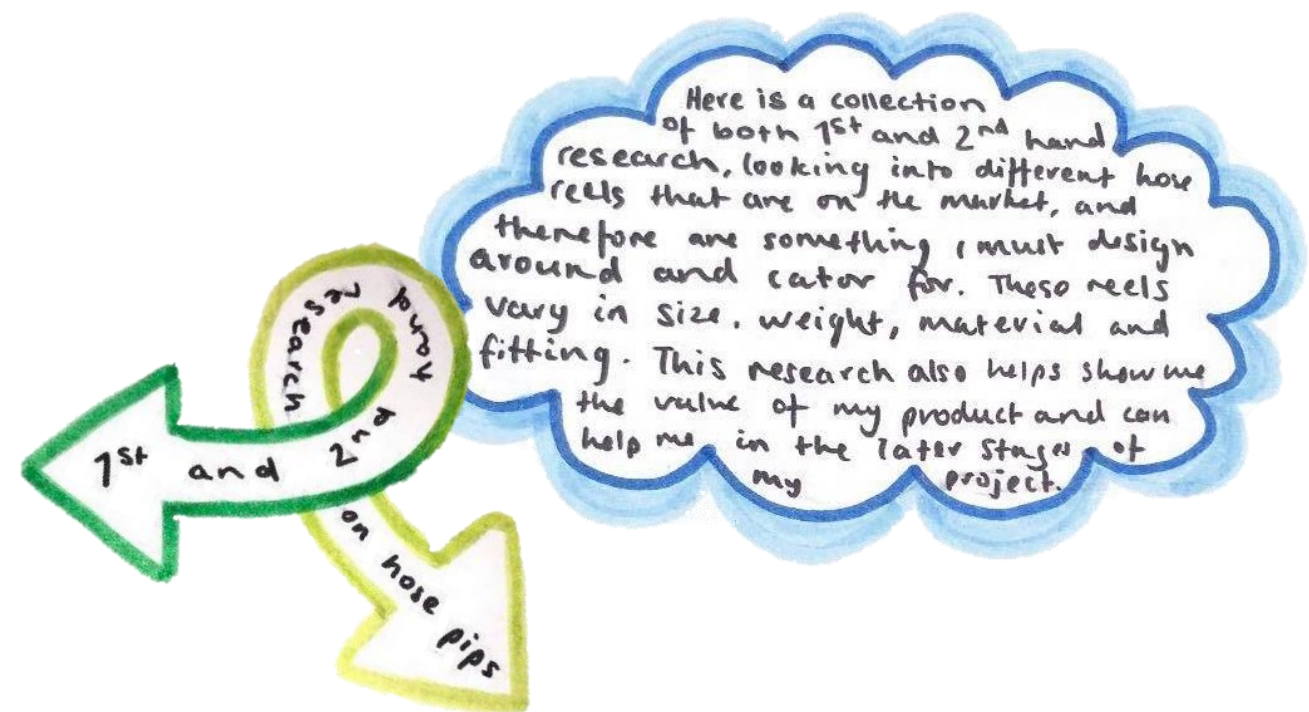 Here is a collection
of both 1st and 2nd hand
research, looking into different hose
reels that are on the market, and
therefore are something I must design
around and cator for. These reels
vary in size, weight, material and
fitting. This research also helps show me
the value of my product and can
help me in the later stages of
my project.
1st and 2nd hand research on hose pips